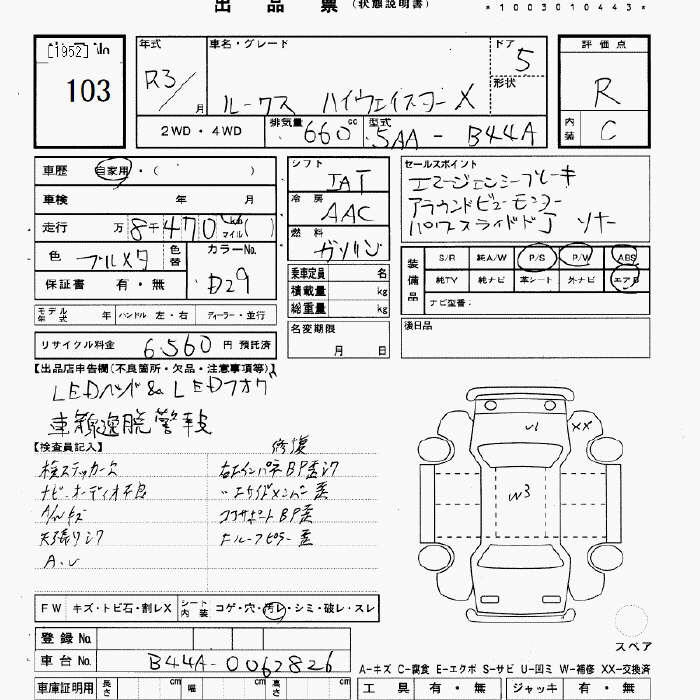 出品票 (状態説明書)
*1003010443*
[1952]
103
年式
R3/
月
車名・グレード
ルークス ハイウェイスター X
ドア
5
形状
2WD・4WD
排気量
660
cc
型式
5AA - B44A
評価点
R
内装
C
車歴
自家用・( )
車検
年 月
走行
万 8千470 km マイル ( )
色
ブルメタ
色替
カラーNo.
D29
保証書 有・無
シフト
IAT
冷房
AAC
燃料
ガソリン
乗車定員 名
積載量 kg
総重量 kg
名変期限
月 日
セールスポイント
エマージェンシーブレーキ
アラウンドビューモニター
パワースライドドア ソナー
装備品
S/R 純A/W P/S P/W ABS
純TV 純ナビ 革シート 外ナビ エアB
ナビ型番:
後日品
モデル年式 年 ハンドル 左・右 ディーラー・並行
リサイクル料金 6,560 円 預託済
【出品店申告欄(不良箇所・欠品・注意事項等)】
LEDヘッド&LEDフォグ
車線逸脱警報
【検査員記入】
修復
検ステッカー欠
ナビ・オーディオ不良
A/Wキズ
天張りシワ
A.U
右エインパネBP歪シワ
〃エサイドメンバー歪
コアサポートBP歪
F.ルーフピラー歪
U1
XX
W3
スペア
FW キズ・トビ石・割レX
シート内装 コゲ・穴・汚レ・シミ・破レ・スレ
登録 No.
車台 No. B44A-0062826
車庫証明用 長さ cm 幅 cm 高さ cm
A-キズ C-腐食 E-エクボ S-サビ U-凹ミ W-補修 XX-交換済
工具 有・無 ジャッキ 有・無